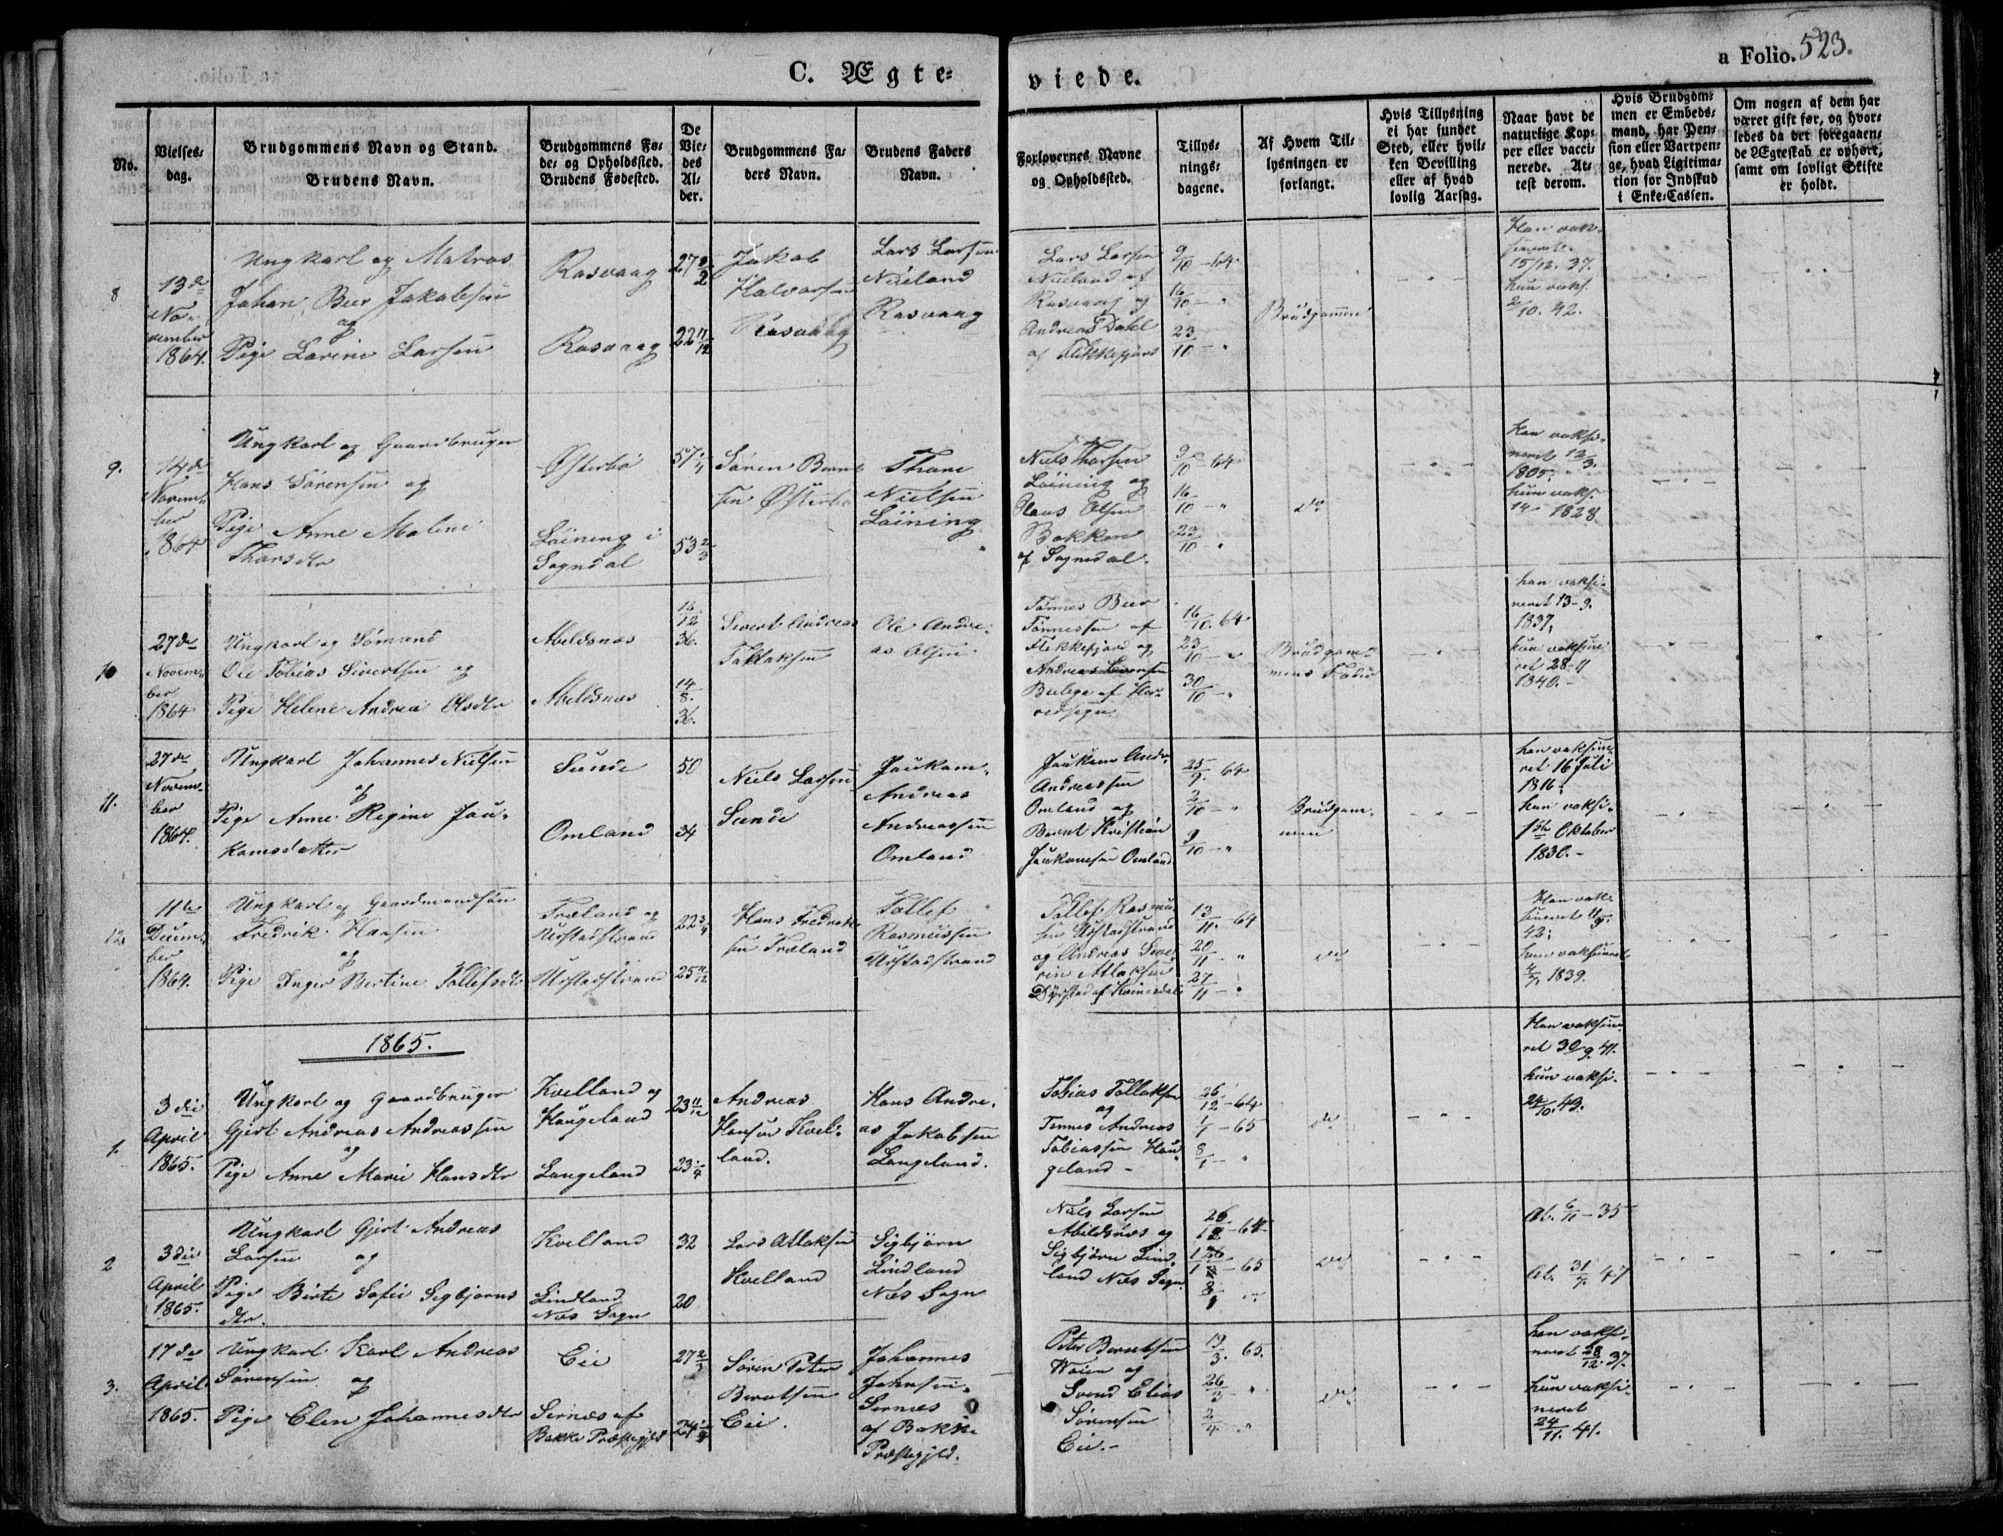 C. Ægte=
viede.
a Folio. 523.
No.
Vielses-
dag.
Brudgommens Navn og Stand.
Brudens Navn.
Brudgommens Fø-
de- og Opholdssted.
Brudens Fødested.
De
Vie-
des
Al-
der.
Brudgommens Fa-
ders Navn.
Brudens Faders
Navn.
Forlovernes Navne
og Opholdssted.
Tillys-
nings-
dagene.
Af Hvem Til-
lysningen er
forlangt.
Hvis Tillysning
ei har fundet
Sted, eller hvil-
ken Bevilling
eller af hvad
lovlig Aarsag.
Naar havt de
naturlige Kop-
per eller vacci-
nerede. At-
test derom.
Hvis Brudgom-
men er Embeds-
mand, har Pen-
sion eller Vartpen-
ge, hvad Ligitima-
tion for Indskud
i Enke-Cassen.
Om nogen af dem har
været gift før, og hvor-
ledes da det foregaaen-
de Ægteskab er ophørt,
samt om lovligt Skifte
er holdt.
8
13de
No-
vember
1864.
Ungkarl og Matros
Johan Beer Jakobsen
og
Pige Larine Larsen
Rasvaag
Rasvaag
Jakob
Halvorsen
Rasvaag
Lars Larsen
Nuland
Rasvaag
Lars Larsen
Nuland af
Rasvaag og
Andreas Dahl
af Flekkefjord
9/10 - 64
16/10 - "
23/10 - "
Brudgommen
Han vak-
sinerede
15/12. 37.
hun vaks.
2/10. 42.
9.
14de
Novem-
ber
1864
Ungkarl og Gaardbruger
Hans Sørensen og
Pige Anne Malene
Thorsdtr
Østerbø
Løining i
Sogndal
57
53 2/3
Søren Bernt-
sen Østerbø
Thore
Nielsen
Løining
Niels Thorsen
Løining og
Claus Olsen
Bakken
af Sognedal.
9/10 - 64
16/10 - "
23/10 - "
do
han vaksi-
neret 12/3
1805.
hun vaks.
14 - 1828
10
27de
Novem-
ber
1864
Ungkarl og Sømand
Ole Tobias Sivertsen og
Pige Helene Andrea Olsdtr
Abeldsnes
Abeldsnes
16/12
36.
14/8.
36.
Sivert Andreas
Tallaksen
Ole Andre-
as Olsen
Tønnes Beer
Tønnessen af
Flekkefjord og
Andreas
af Her-
red Sogn
16/10. 64
23/10 - "
30/10 - "
Brudgom-
mens Fader
han vaksi-
neret 13-9.
1837,
hun vaksine-
ret 28-11
1840. -
11.
27de
Novem-
ber
1864.
Ungkarl Johannes Nielsen
og
Pige Anne Regine Jou-
kamsdatter
Sunde
Omland
50
34
Niels Larsen
Sunde
Joukam
Andreas
Andreassen
Omland
Joukam Andr.
Andreassen
Omland og
Bernt Kristian
Joukamsen Omland
25/9. 64
2/10 - "
9/10 - "
Brudgom-
men
han vaksine-
ret 16 Juli
1816.
hun vaksi-
1ste Oktober
1830. -
12.
11te
Decem-
ber
1864.
Ungkarl og Gaardmandssøn
Fredrik Hansen
og
Pige Inger Bertine Tollefsdtr
Træland og
Urstadstrand
Urstadstrand
22 3/4
25 11/12
Hans Fredrik-
sen Træland
Tollef
Rasmussen
Urstadstrand
Tollef Rasmus-
sen Urstadstrand
og Andreas Seve-
rin Atlaksen
Dyrstad af Kvinesdal
13/11. 64
20/11 - "
27/11 - "
do
Han vak-
sineret
42;
hun vaksineret
1839.
1865.
1.
3die
April
1865.
Ungkarl og Gaardbruger
Gjert Andreas Andreassen
og
Pige Anne Marie Hansdtr
Kvelland og
Haugeland
Langeland
23 11/12
23 1/4
Andreas
Hansen Kvel-
land.
Hans Andre-
as Jakobsen
Langeland.
Tobias Tollaksen
og
Tønnes Andreas
Tobiassen Hau-
geland -
26/12 - 64
1/1 - 65
8/1 - "
do
Han vaksine-
ret 30/9. 41.
hun vaksi-
24/10. 43.
2
3die
April
1865.
Ungkarl Gjert Andreas
Larsen og
Pige Birte Sofie Sigbjørns
dtr.
Kvelland
Lindland
Næs Sogn
32
20
Lars Atlaksen
Kvelland
Sigbjørn
Lindland
Næs Sogn
Niels Larsen
Abeldsnes og
Sigbjørn Lind-
land Næs Sogn.
26/12 - 64
65
do
At. 6/11 - 35
At. 31/7. 47
3.
17de
April
1865.
Ungkarl Karl Andreas
Sørensen og
Pige Elen Johannesdtr
Eie
Sernæs af
Bakke Præstegjeld
27 2/3
24
Søren Peter
Berntsen
Eie.
Johannes
Johnsen.
Sernæs
af Bakke
Præstegjeld.
Peter Berntsen
og
Svend Elias
Sørensen
Eie. -
19/3. 65.
26/3 - "
2/4 "
do
han vaksi-
neret 28/12. 37.
hun vaksi-
neret
24/11. 41.